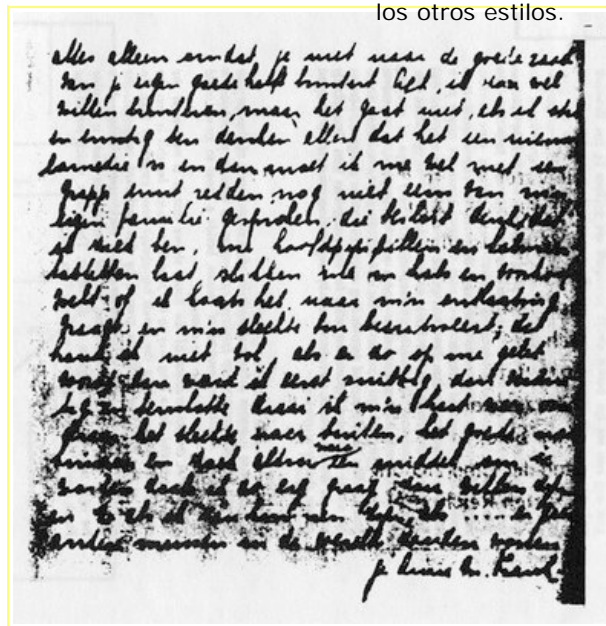 los otros estilos.
alles alleen omdat je niet naar de goede raad
van je eigen goede helft luistert. ik zou wel
willen luisteren, maar het gaat niet, als ik stil
en ernstig ben denken allen dat het een nieuwe
comedie is en dan moet ik me wel met een
grapje eruit redden, nog niet eens van m'n
eigen familie gesproken, die beslist denkt dat
ik ziek ben, me hoofdpijnpillen en
tabletten laat slikken me in hals en voorhoofd
voelt of ik koorts heb, naar m'n ontlasting
vraagt en m'n slechte bui becritiseert, dat
houd ik niet vol, als er zo op me gelet
wordt dan word ik eerst snibbig, dan
en tenslotte draai ik m'n hart weer om
draai het slechte naar buiten, het goede naar
binnen en zoek aldoor naar een middel om te
worden zoals ik zo erg graag zou willen zijn
en zoals ik zou kunnen zijn, als .... er geen
andere mensen in de wereld zouden wonen
je Anne M. Frank.